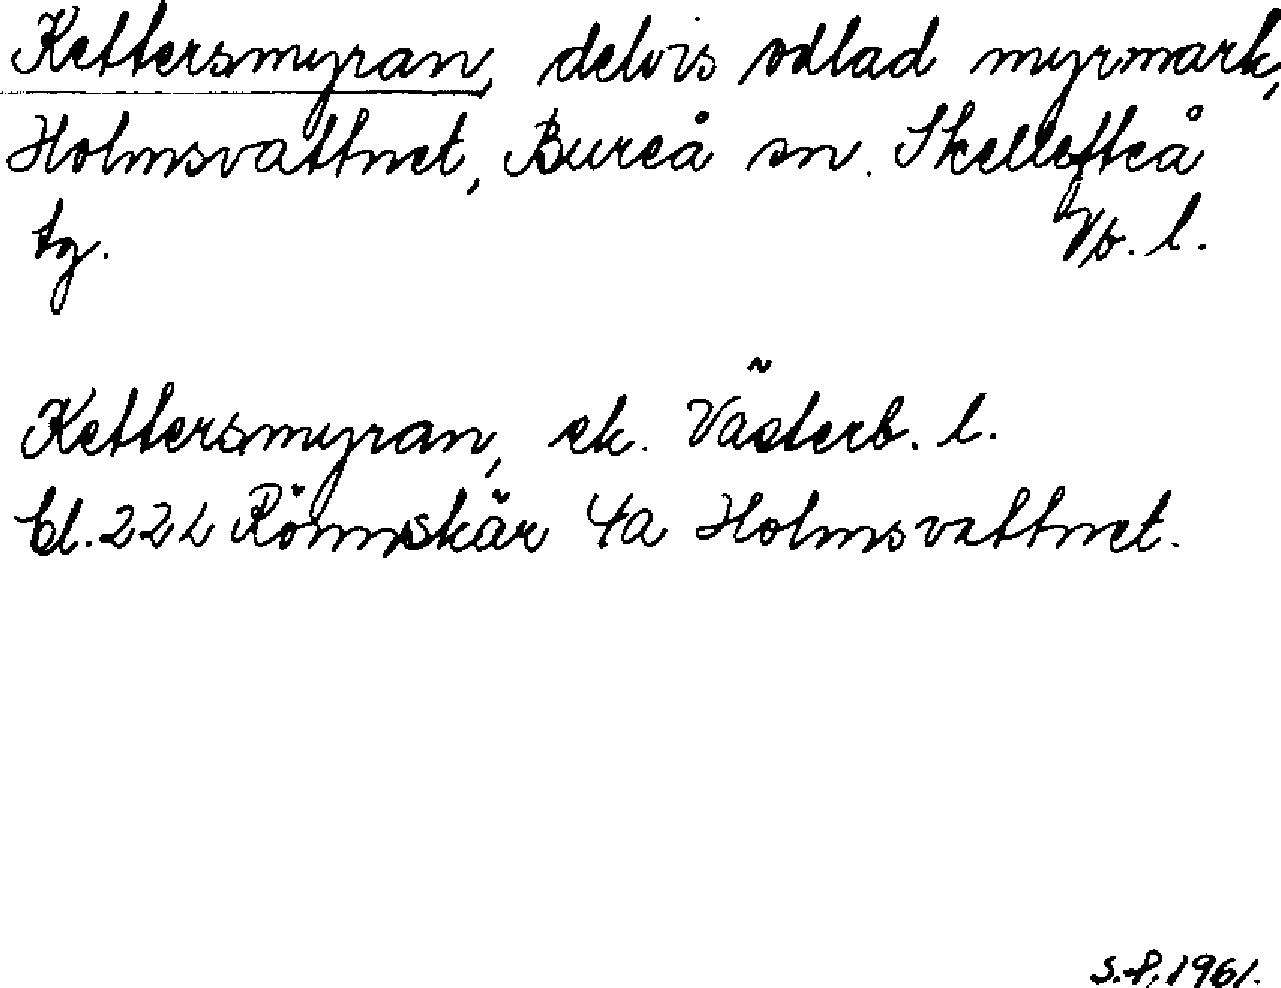 Kettersmyran, delvis odlad myrmark,
Holmsvattnet, Bureå sn. Skellefteå
tg. Vb. l.
Kettersmyran, ek. Västerb. l.
bl. 22 L Rönnskär 4a Holmsvattnet.
S.P. 1961.